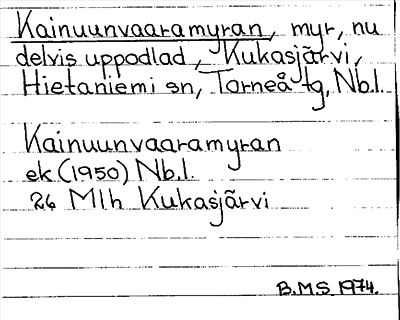 Kainuunvaaramyran, myr, nu
delvis uppodlad, Kukasjärvi,
Hietaniemi sn, Torneå tg, Nb.l.
Kainuunvaaramyran
ek (1950) Nb.l.
26 Mlh Kukasjärvi
B.M.S. 1974.